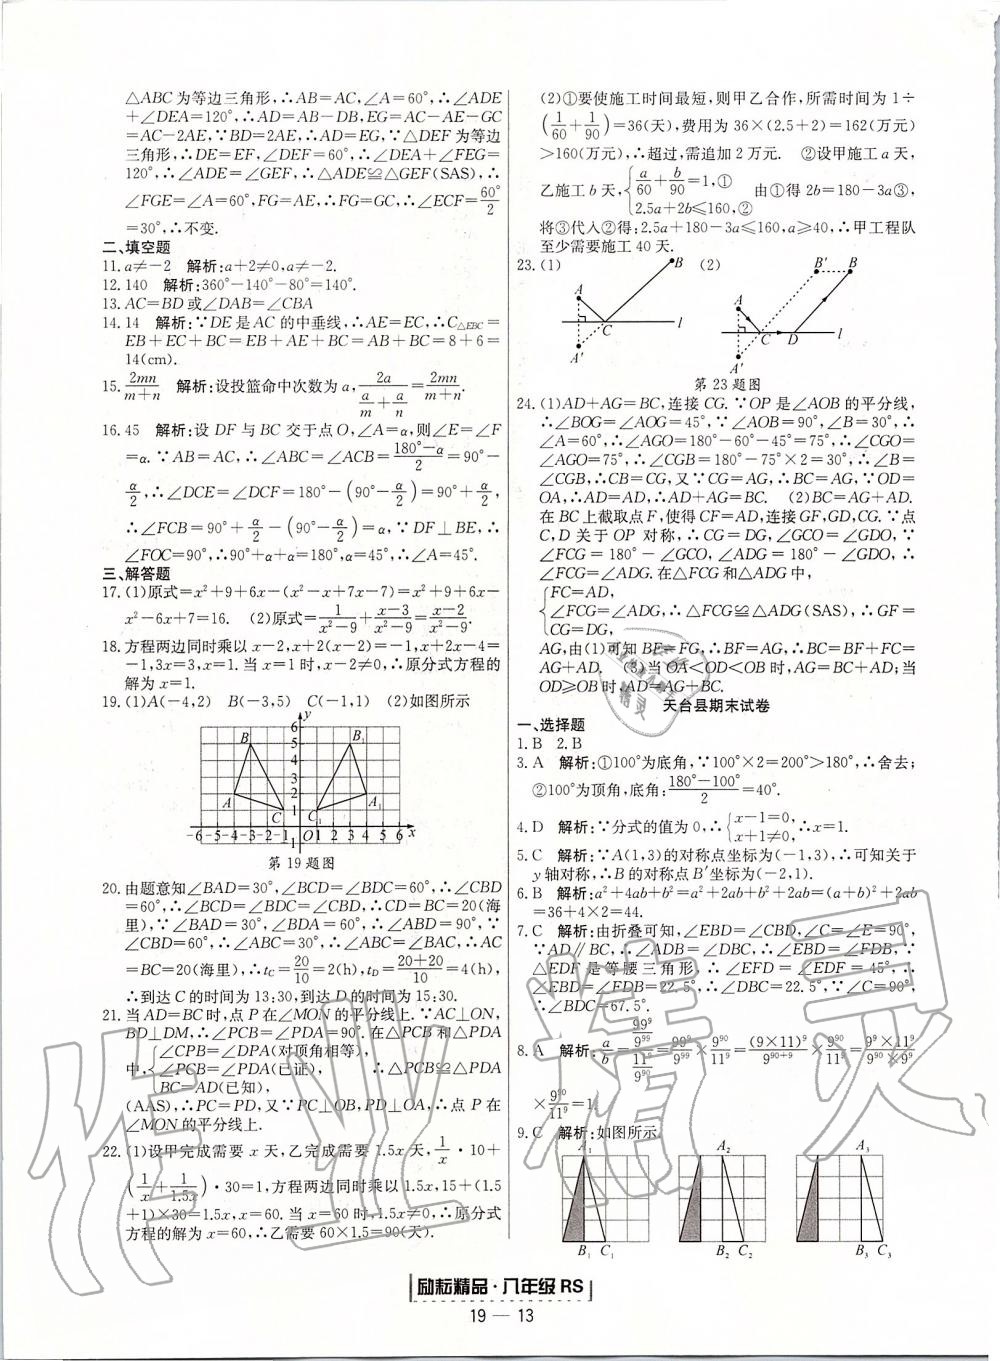 △ABC为等边三角形,∴AB=AC,∠A=60°,∴∠ADE
+∠DEA=120°,∴AD=AB-DB,EG=AC-AE-GC
=AC-2AE,∵BD=2AE,∴AD=EG,∵△DEF为等边
三角形,∴DE=EF,∠DEF=60°,∴∠DEA+∠FEG=
120°,∴∠ADE=∠GEF,∴△ADE≌△GEF(SAS),∴
∠FGE=∠A=60°,FG=AE,∴FG=GC,∴∠ECF=60°/2
=30°,∴不变.
二、填空题
11.a≠-2 解析:a+2≠0,a≠-2.
12.140 解析:360°-140°-80°=140°.
13.AC=BD或∠DAB=∠CBA
14.14 解析:∵DE是AC的中垂线,∴AE=EC,∴C△EBC=
EB+EC+BC=EB+AE+BC=AB+BC=8+6=
14(cm).
15.2mn/(m+n) 解析:设投篮命中次数为a,2a/(a/m+a/n)=2mn/(m+n).
16.45 解析:设DF与BC交于点O,∠A=α,则∠E=∠F
=α.∵AB=AC,∴∠ABC=∠ACB=(180°-α)/2=90°-
α/2,∴∠DCE=∠DCF=180°-(90°-α/2)=90°+α/2,
∴∠FCB=90°+α/2-(90°-α/2)=α,∵DF⊥BE,∴
∠FOC=90°,∴90°+α+α=180°,α=45°,∴∠A=45°.
三、解答题
17.(1)原式=x²+9+6x-(x²-x+7x-7)=x²+9+6x-
x²-6x+7=16. (2)原式=1/(x²-9)+(x-3)/(x²-9)=(x-2)/(x²-9).
18.方程两边同时乘以x-2,x+2(x-2)=-1,x+2x-4=
-1,3x=3,x=1.当x=1时,x-2≠0,∴原分式方程的
解为x=1.
19.(1)A(-4,2) B(-3,5) C(-1,1) (2)如图所示
y
6
B 5 B₁
4
3
A 2 A₁
C 1 C₁
-6-5-4-3-2-1 O 1 2 3 4 5 6 x
1
第19题图
20.由题意知∠BAD=30°,∠BDC=∠BDC=60°,∴∠CBD
=60°,∴∠BCD=∠BDC=∠BCD,∴CD=BC=20(海
里),∵∠BAD=30°,∠BDA=60°,∴∠ABD=90°,∵
∠CBD=60°,∴∠ABC=30°,∴∠ABC=∠BAC,∴AC
=BC=20(海里),∴tC=20/10=2(h),tD=(20+20)/10=4(h),
∴到达C的时间为13:30,到达D的时间为15:30.
21.当AD=BC时,点P在∠MON的平分线上.∵AC⊥ON,
BD⊥DM,∴∠PCB=∠PDA=90°.在△PCB和△PDA
中,{∠CPB=∠DPA(对顶角相等),
∠PCB=∠PDA(已证), ∴△PCB≌△PDA
BC=AD(已知),
(AAS),∴PC=PD,又∵PC⊥OB,PD⊥OA,∴点P在
∠MON的平分线上.
22.(1)设甲完成需要x天,乙完成需要1.5x天,1/x·10+
(1/x+1/1.5x)·30=1,方程两边同时乘以1.5x,15+(1.5
+1)×30=1.5x,x=60.当x=60时,1.5x≠0,∴原分式
方程的解为x=60,∴乙需要60×1.5=90(天).
(2)①要使施工时间最短,则甲乙合作,所需时间为1÷
(1/60+1/90)=36(天),费用为36×(2.5+2)=162(万元)
>160(万元),∴超过,需追加2万元. ②设甲施工a天,
乙施工b天,{a/60+b/90=1,① 2.5a+2b≤160,② 由①得2b=180-3a③,
将③代入②得:2.5a+180-3a≤160,a≥40,∴甲工程队
至少需要施工40天.
23.(1) (2)
A B C A′ l
A B′ B C D A′ l
第23题图
24.(1)AD+AG=BC,连接CG.∵OP是∠AOB的平分线,
∴∠BOG=∠AOG=45°,∵∠AOB=90°,∠B=30°,∴
∠A=60°,∴∠AGO=180°-60°-45°=75°,∴∠CGO=
∠AGO=75°,∴∠CGB=180°-75°×2=30°,∴∠B=
∠CGB,∴CB=CG,又∵CG=AG,∴BC=AG,∵OD=
OA,∴AD=AD,∴AD+AG=BC. (2)BC=AG+AD.
在BC上截取点F,使得CF=AD,连接GF,GD,CG.∵点
C,D关于OP对称,∴CG=DG,∠GCO=∠GDO,∵
∠FCG=180°-∠GCO,∠ADG=180°-∠GDO,∴
∠FCG=∠ADG.在△FCG和△ADG中,
{FC=AD,
∠FCG=∠ADG,∴△FCG≌△ADG(SAS),∴GF=
CG=DG,
AG,由(1)可知BF=FG,∴BF=AG,∴BC=BF+FC=
AG+AD. (3)当OA<OD<OB时,AG=BC+AD;当
OD≥OB时,AD=AG+BC.
天台县期末试卷
一、选择题
1.B 2.B
3.A 解析:①100°为底角,∵100°×2=200°>180°,∴舍去;
②100°为顶角,底角:(180°-100°)/2=40°.
4.D 解析:∵分式的值为0,∴{x-1=0, x+1≠0,∴x=1.
5.C 解析:∵A(1,3)的对称点坐标为(-1,3),∴可知关于
y轴对称,∴B的对称点B′坐标为(-2,1).
6.B 解析:a²+4ab+b²=a²+2ab+b²+2ab=(a+b)²+2ab
=36+4×2=44.
7.C 解析:由折叠可知,∠EBD=∠CBD,∠C=∠E=90°,
∵AD∥BC,∴∠ADB=∠DBC,∴∠EBD=∠FDB,∵
△EDF是等腰三角形,∴∠EFD=∠EDF=45°,∴
∠EBD=∠FDB=22.5°,∴∠DBC=22.5°,∵∠C=90°,
∴∠BDC=67.5°.
8.A 解析:a/b=(99⁹/9⁹⁹)/(11⁹/9⁹⁰)=99⁹/9⁹⁹×9⁹⁰/11⁹=(9×11)⁹/9⁹⁰⁺⁹×9⁹⁰/11⁹=9⁹×11⁹/9⁹⁰×9⁹
×9⁹⁰/11⁹=1.
9.C 解析:如图所示.
A₁ A₂ A₃
B₁ C₁ B₂ C₂ B₃ C₃
励耘精品·八年级RS
19 — 13
作业精灵